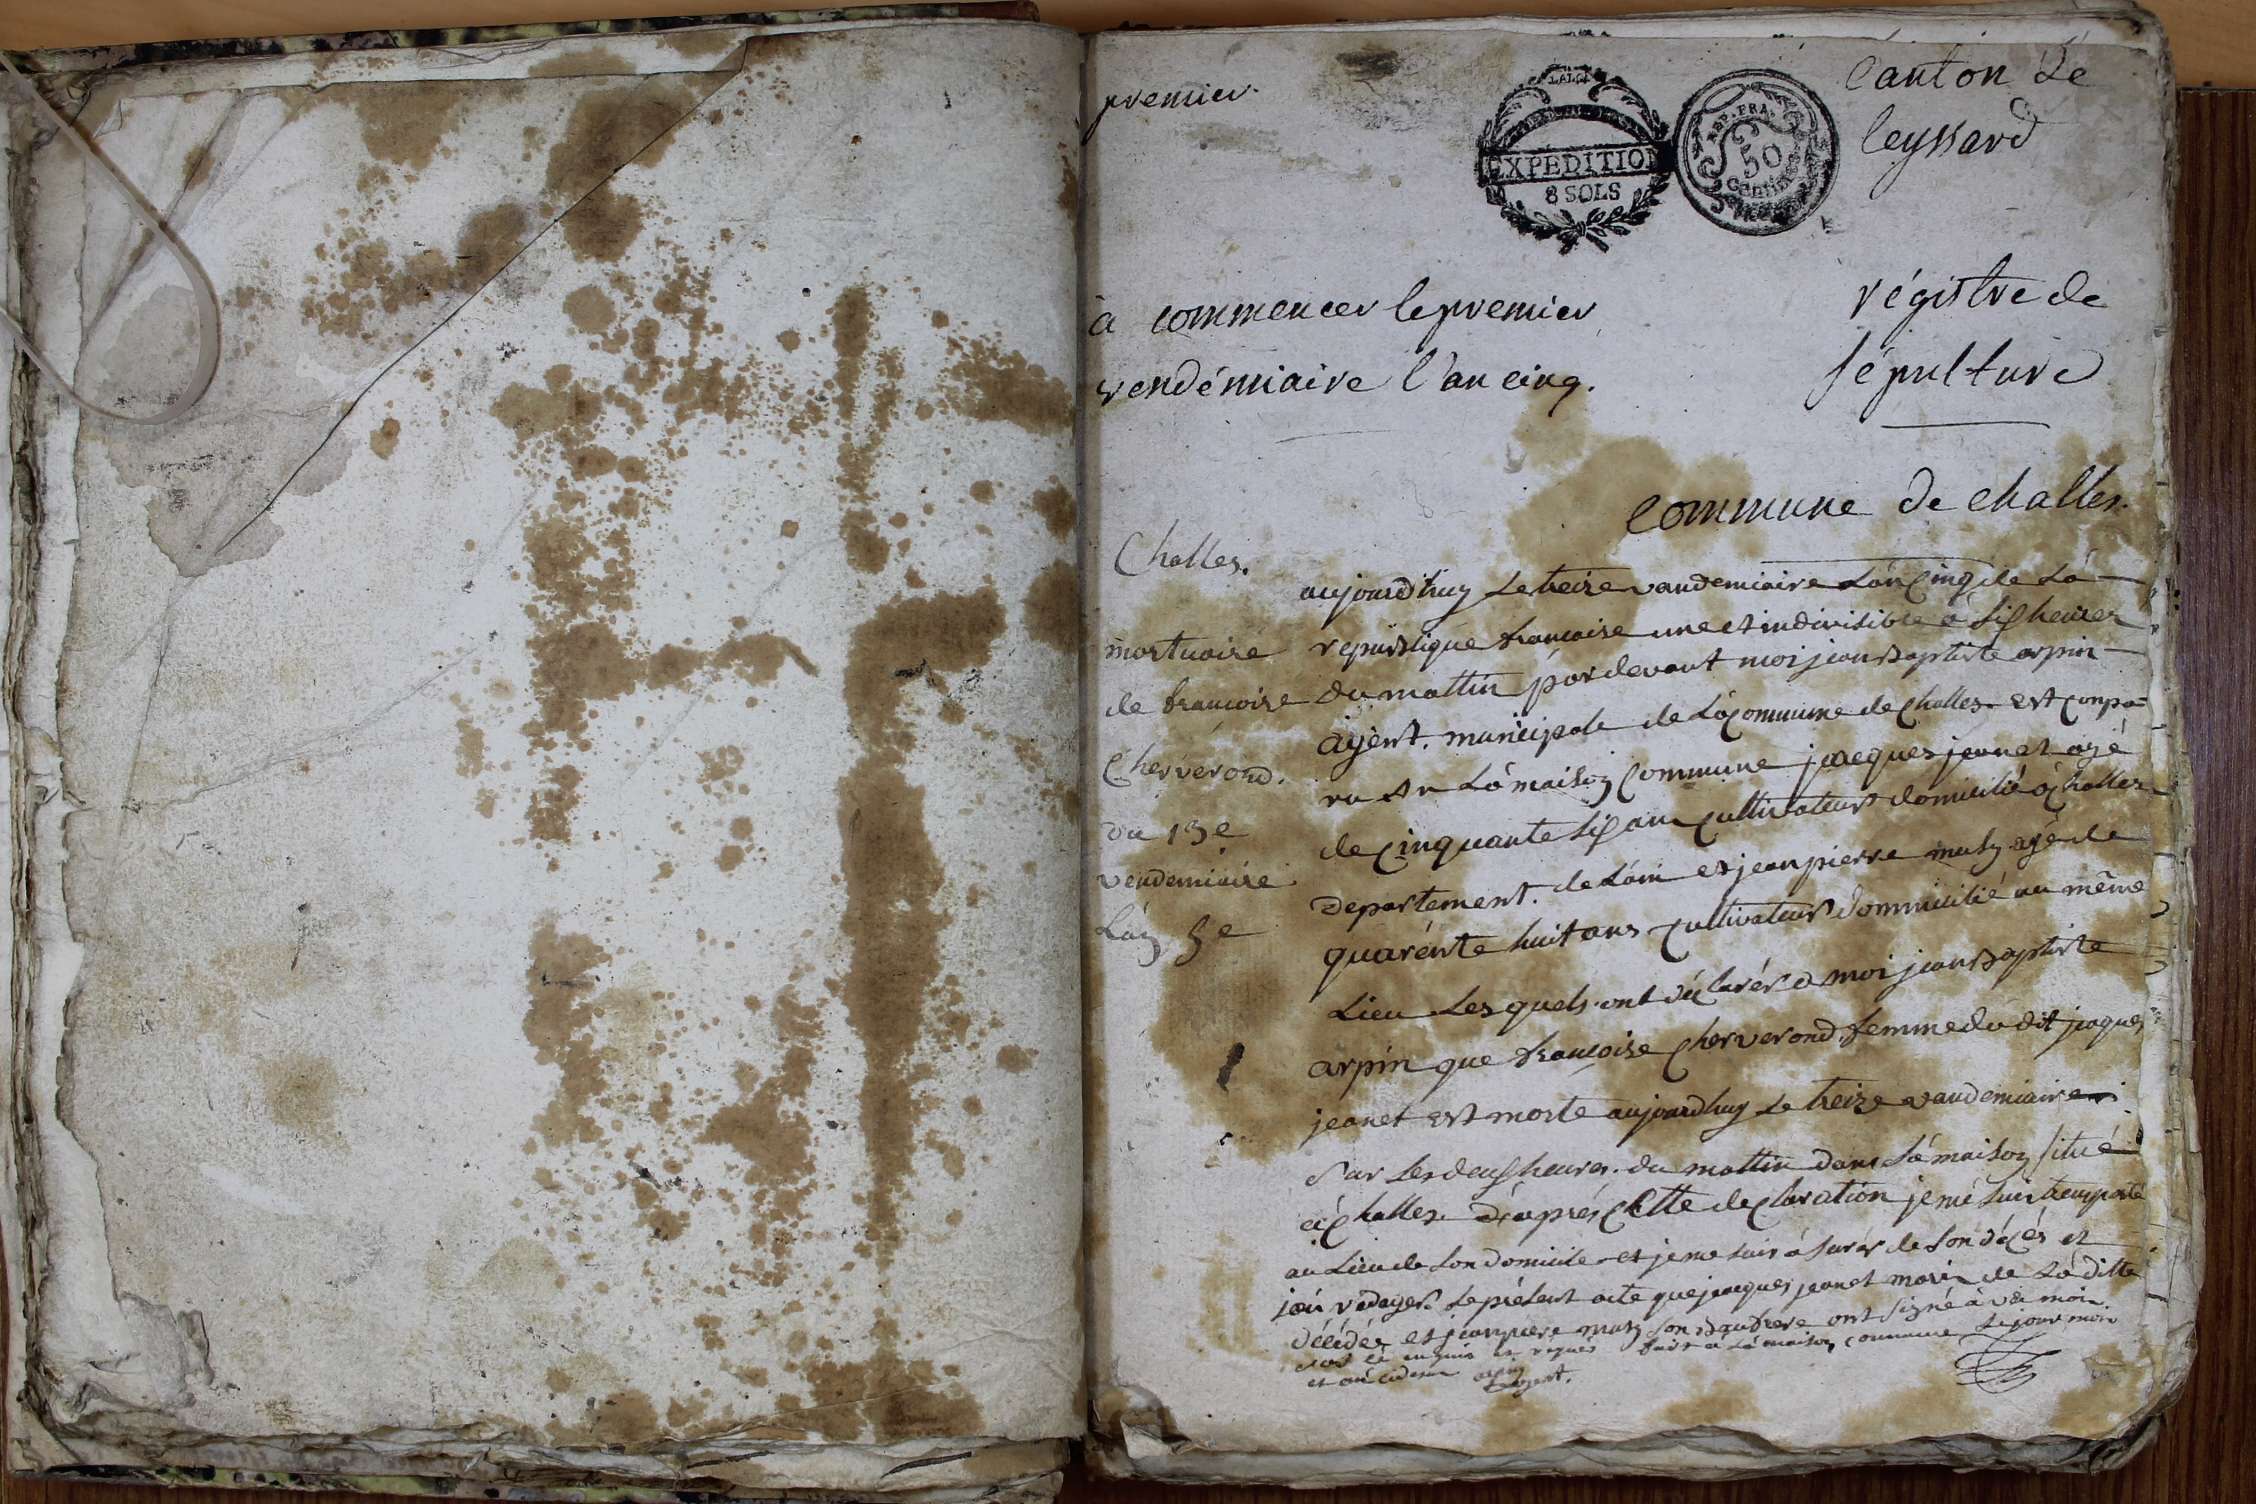 premier.
L'AIN
EXPEDITION
8 SOLS
REP. FRA.
50
Centimes
Canton de
leyssard
à commencer le premier
vendémiaire l'an cinq.
régistre de
sépulture
Commune de challes.
Challes.
mortuaire
de francoise
Cherverond.
du 13e
vendemiaire
Lan 5e
aujourdhuy Le treize vandemiaire Lan Cinq de La
republique francaise une et indivisible a six heures
du mattin pardevant moi jean baptiste arpin
agent. municipale de La Commune de Challes. est Conpa
ru En La maison Commune jacques jeanet agé
de Cinquante six ans Cultivateur domicilié a Challes
departement. de Lain et jean pierre muty agé de
quarente huit ans Cultivateur dommicilié au même
Lieu Les quels. ont déClarér a moi jean baptiste
arpin que francoise Cherverond. femme du dit jaques
jeanet est morte aujourdhuy Le treize vandemiaire
sur Les deux heures. du mattin dans La maison situé
a Challes. d'aprés Cette deClaration je mé suis transporté
au Lieu de son domicile et je me suis asurér de son déCés et
jai rédiger Le présent acte que jacques jeanet mari de La ditte
décédée et jean piere muty son baufrere ont signé a vec moi
fait a La maison Commune Le jour mois
et an cidesus arpin
agent.